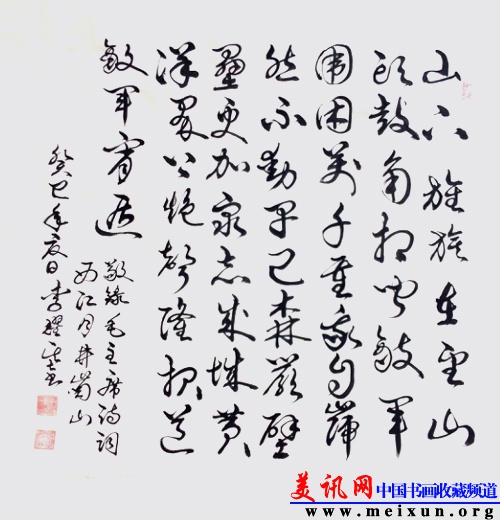 山下旌旗在望山
头鼓角相闻敌军
围困万千重我自岿
然不動早已森严壁
壘更加众志成城黄
洋界上炮声隆报道
敌军宵遁
敬録毛主席诗词
西江月井崗山
癸巳年夏日李耀
美讯网中国书画收藏频道
www.meixun.org